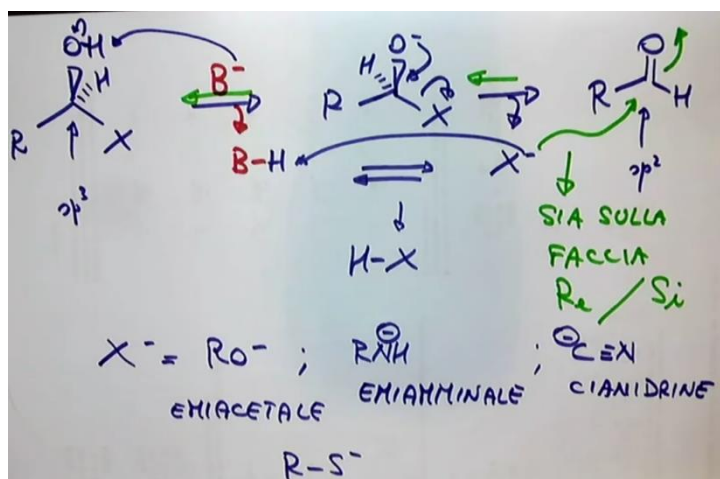 OH
H
R
X
sp³
B⁻
B-H
O⁻
H
R
X
H-X
X⁻
O
R
H
sp²
SIA SULLA
FACCIA
Re / Si
X⁻ = RO⁻ ; RNH⊖ ; ⊖C≡N
EMIACETALE EMIAMMINALE CIANIDRINE
R-S⁻